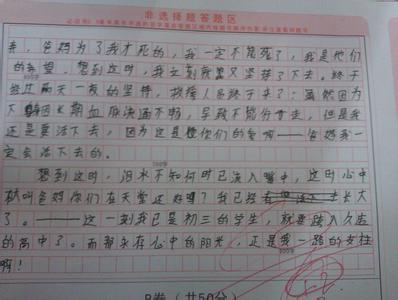 非选择题答题区
来，爸妈为了我才死的，我一定不能死了，我是他们
的希望，想到这时，我立刻就又坚持了下去。终于
经过两天一夜的坚持，救援人员终于来了！虽然因为
下 因长期血液流通不畅，导致不能行走，但是我
还是要活下去，因为这是他们的 ——爸妈我一
定会活下去的。
想到这时，泪水不知何时已流入嘴中，这时心中
就叫爸妈你们在天堂还好吗？我已经 长大
了。——这一刻我已是初三的学生，就要踏入久违
的高中了。而那朵在心中的阳光，正是我一路的支柱
啊！
B卷（共50分）